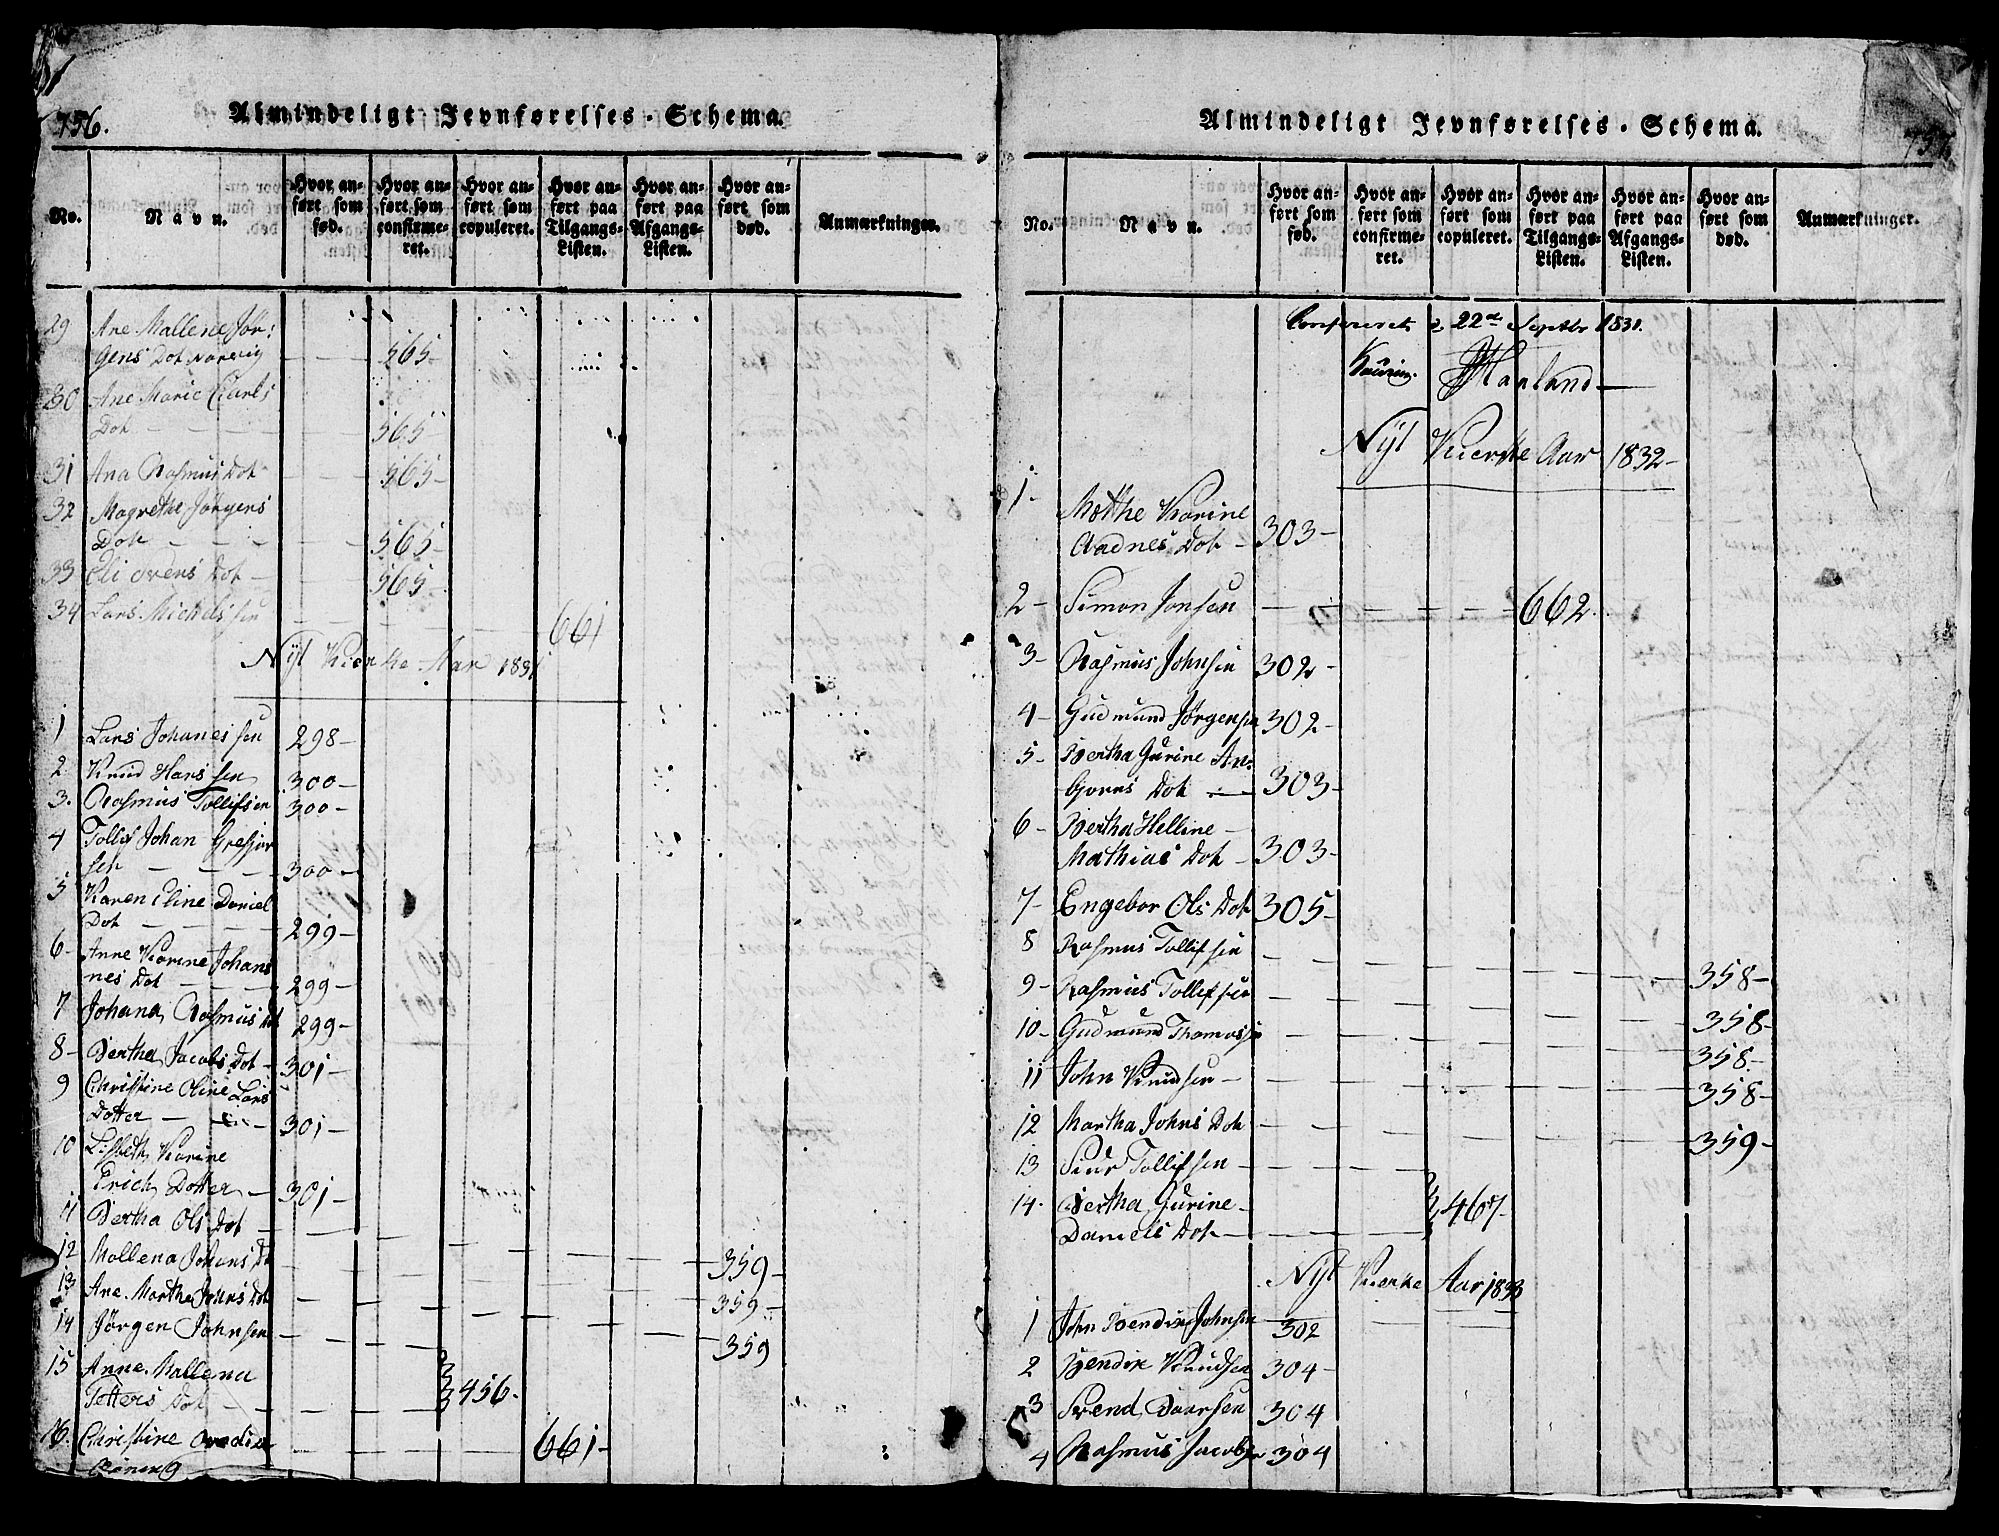 756.
Almindeligt Jevnførelses-Schema.
No.
Navn.
Hvor an-
ført som
fød.
Hvor an-
ført som
confirme-
ret.
Hvor an-
ført som
copuleret.
Hvor an-
ført paa
Tilgangs-
Listen.
Hvor an-
ført paa
Afgangs-
Listen.
Hvor an-
ført som
død.
Anmærkninger.
29 Ane Mallene Jør:
gens Dot Narvig — — 565-
30 Ane Marie Carls
Dot — — — 565-
31 Ana Rasmus Dot 565-
32 Magrethe Jørgens
Dot — — — 565-
33 Eli Svens Dot — 565-
34 Lars Michels sen — — — 661
Nyt Kierke Aar 1831
1 Lars Johanes sen 298-
2 Knud Hans sen 300-
3. Rasmus Tollifsen 300-
4 Tollif Johan Gresjor
sen — — — 300-
5 Karen Eline Daniel
Dot — — — 299-
6- Anne Karine Johans
nes Dot — — 299-
7 Johana Rasmus Dot 299-
8- Bertha Jacobs Dot - 301-
9 Christine Oline Lars
Dotter — — 301-
10 Lisbeth Karine
Erich Dotter — 301-
11 Bertha Ols Dot — — — 359-
12 Mallena Johans Do — — — 359-
13 Ane Marthe Johns Dot — — — 359
14 Jørgen Johnsen — — —
15 Anne Mallena
Tetters Dot — — — 456.
16. Christine
— — — 661-
Almindeligt Jevnførelses-Schema.
No.
Navn.
Hvor an-
ført som
fød.
Hvor an-
ført som
confirme-
ret.
Hvor an-
ført som
copuleret.
Hvor an-
ført paa
Tilgangs-
Listen.
Hvor an-
ført paa
Afgangs-
Listen.
Hvor an-
ført som
død.
Anmærkninger.
Confereret d. 22de Septbr 1831.
Haaland
Nyt Kierke Aar 1832-
1- Mathe Karine
Aadnes Dot — 303-
2- Simon Jonsen — — — 662.
3- Rasmus Johnsen 302-
4- Gudmund Jørgensen 302-
5- Bertha Gurine An-
bjørns Dot — 303-
6- Bertha Helline —
Mathias Dot — 303-
7- Engebor Ols Dot 305-
8 Rasmus Tollifsen — — — 358-
9- Rasmus Tollefsen — — — 358-
10- Gudmund Thomassen — — — 358-
11 John Knudsen — — — 358-
12 Martha Johns Dot — — — 359-
13 Siur Tollifsen — — —
14. Bertha Gurine —
Daniels Dot — — — 467-
Nyt Kierke Aar 1833
1 John Bendix Johnsen 302
2 Bendix Knudsen 304-
3 Svend Baarsen 304
4 Rasmus Jacobsen 304